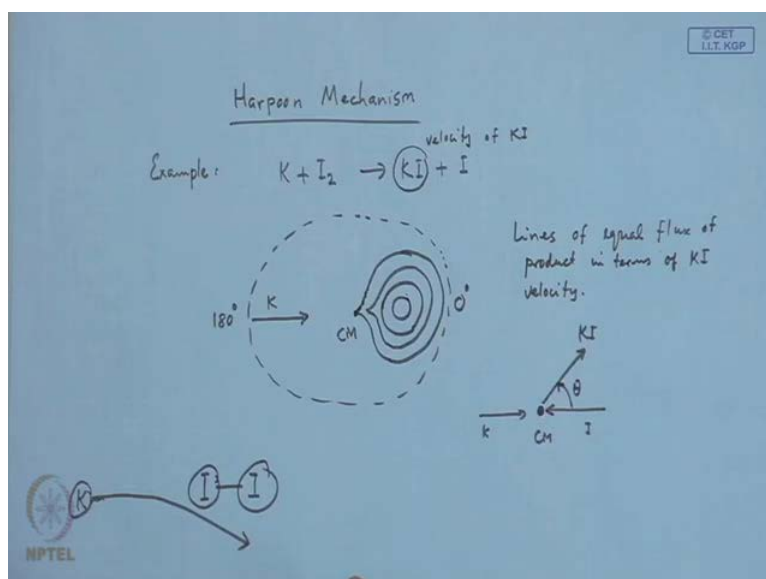 © CET
I.I.T. KGP
Harpoon Mechanism
velocity of KI
Example: K + I₂ → KI + I
Lines of equal flux of
product in terms of KI
velocity.
180° K CM 0°
KI
θ
K CM I
K I I
NPTEL